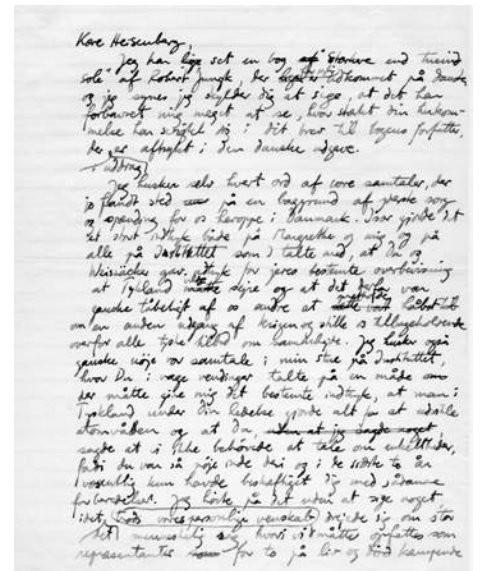 Kære Heisenberg,
Jeg har lige set en bog "Stærkere end tusind
sole" af Robert Jungk, der udkommet på dansk
og jeg synes, jeg skylder dig at sige, at det har
forbavset mig meget at se, hvor stærkt din hukom-
melse har svigtet dig i dit brev til bogens forfatter,
der er aftrykt i den danske udgave.
i uddrag
Jeg husker selv hvert ord af vore samtaler, der
jo fandt sted på en baggrund af sorg
og spænding for os heroppe i Danmark. Især gjorde det
et stort indtryk både på Margrethe og mig og på
alle på Instituttet som I talte med, at Du og
Weisäcker gav udtryk for jeres bestemte overbevisning
at Tyskland ville sejre og at det derfor var
ganske tåbeligt af os andre at håbet til
om en anden udgang af krigen og stille os tilbageholdende
overfor alle tyske tilbud om samarbejde. Jeg husker også
ganske nøje vor samtale i min stue på Instituttet,
hvor Du i vage vendinger talte på en måde som
der måtte give mig det bestemte indtryk, at man i
Tyskland under Din ledelse gjorde alt for at udvikle
atomvåben og at Du, uden at jeg sagde noget
sagde at vi ikke behøvede at tale om enkeltheder,
fordi du var så nøje inde deri og i de sidste to år
væsentlig kun havde beskæftiget dig med sådanne
forberedelser. Jeg hørte på det uden at sige noget
idet, trods vores personlige venskab drejede sig om stor
menneskelig sag hvori vi måtte opfattes som
repræsentanter for to på liv og død kæmpende